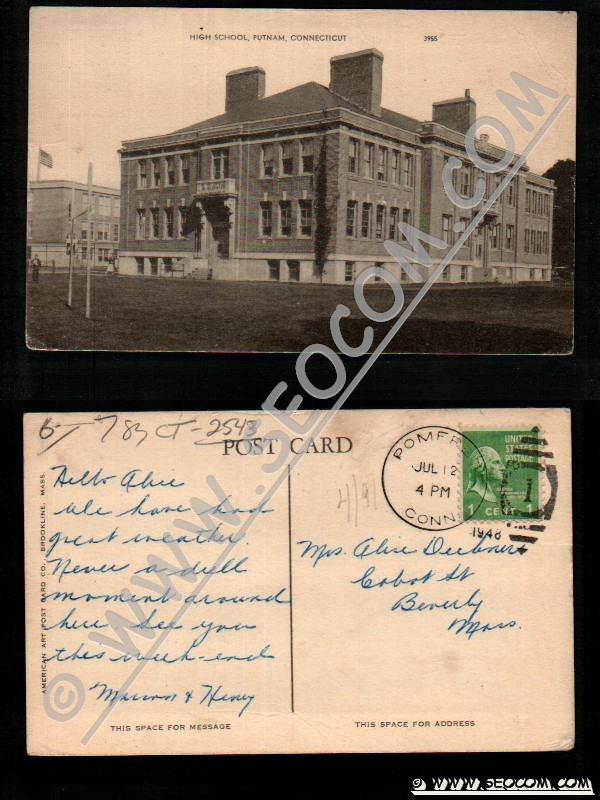 HIGH SCHOOL, PUTNAM, CONNECTICUT 3955
© WWW.SEOCOM.COM
POST CARD
POMFRET
JUL 12
4 PM
CONN.
1948
UNITED STATES POSTAGE
1 CENT 1
4/91
Hello Alice
We have had
great weather.
Never a dull
moment around
here. See you
this week-end
Marion & Henry
Mrs. Alice
Cabot St
Beverly
Mass.
AMERICAN ART POST CARD CO., BROOKLINE, MASS.
THIS SPACE FOR MESSAGE
THIS SPACE FOR ADDRESS
© WWW.SEOCOM.COM